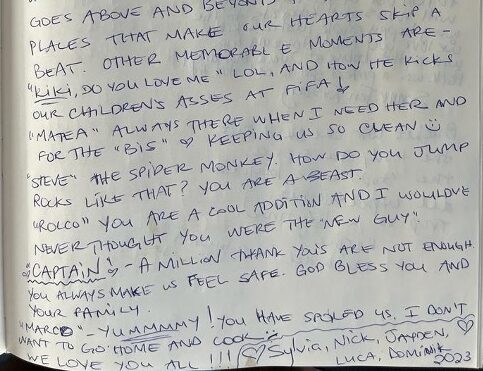 GOES ABOVE AND BEYOND
PLACES THAT MAKE OUR HEARTS SKIP A
BEAT. OTHER MEMORABLE MOMENTS ARE -
"KIKI, DO YOU LOVE ME" LOL, AND HOW HE KICKS
OUR CHILDREN'S ASSES AT FIFA!
"MATEA" ALWAYS THERE WHEN I NEED HER AND
FOR THE "BIS" ♡ KEEPING US SO CLEAN ☺
"STEVE" THE SPIDER MONKEY. HOW DO YOU JUMP
ROCKS LIKE THAT? YOU ARE A BEAST.
"ROCCO" YOU ARE A COOL ADDITION AND I WOULD'VE
NEVER THOUGHT YOU WERE THE "NEW GUY".
"CAPTAIN" - A MILLION THANK YOU'S ARE NOT ENOUGH.
YOU ALWAYS MAKE US FEEL SAFE. GOD BLESS YOU AND
YOUR FAMILY.
"MARCO" - YUMMMMY! YOU HAVE SPOILED US. I DON'T
WANT TO GO HOME AND COOK
WE LOVE YOU ALL !!! ♡ Sylvia, Nick, Jayden, ♡
LUCA, DOMINIK
2023